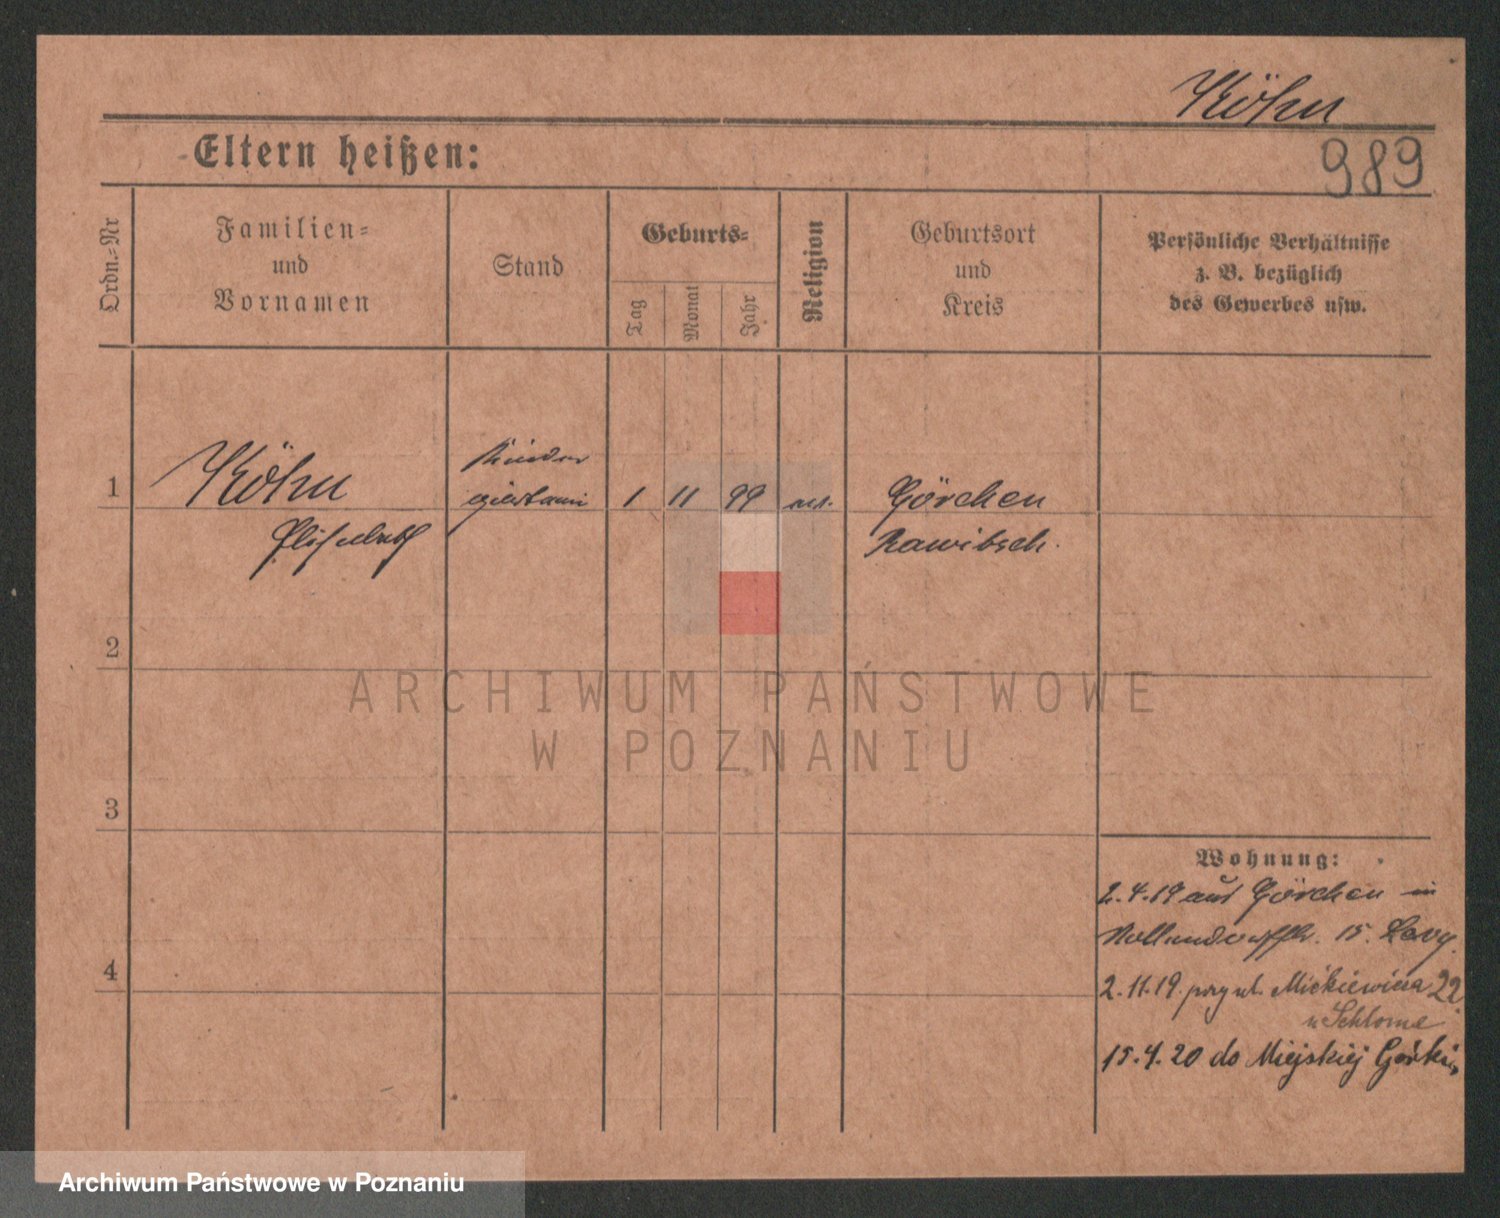 Köhn
Eltern heißen:
989
Ordn.-Nr
Familien-
und
Vornamen
Stand
Geburts-
Tag
Monat
Jahr
Religion
Geburtsort
und
Kreis
Persönliche Verhältnisse
z. B. bezüglich
des Gewerbes usw.
1
Köhn
Elisabeth
Kinder
gärtnerin
1 11 99
Görchen
Rawitsch.
2
3
4
Wohnung:
2.4.19 aus Görchen in
15.
2.11.19. przy ul. Mickiewicza 22
u Schlome
15.4.20 do Miejskiej Górki
ARCHIWUM PAŃSTWOWE
W POZNANIU
Archiwum Państwowe w Poznaniu